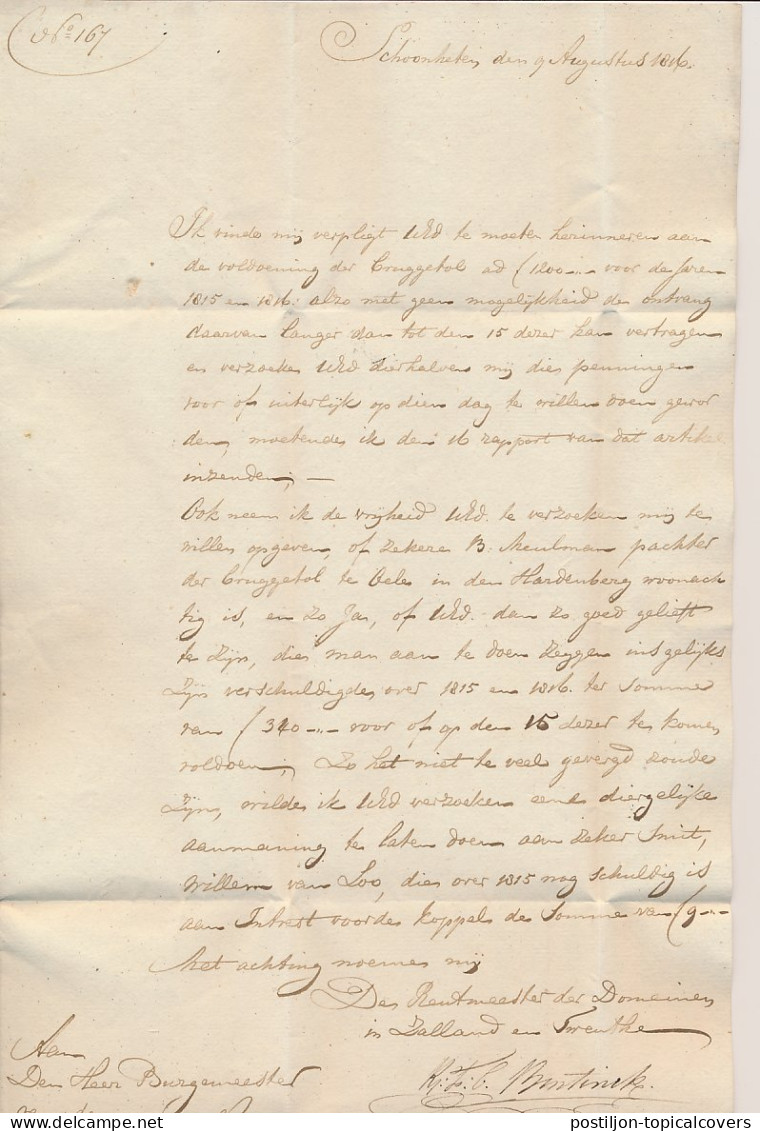 No 167
Schoonheten den 9 Augustus 1816.
Ik vinde mij verpligt UEd te moeten herinneren aan
de voldoening der Bruggetol ad f 1200--- voor de Jaren
1815 en 1816: alzo met geen mogelijkheid de ontvang
daarvan langer dan tot den 15 dezer kan vertragen
en verzoeke UEd dierhalven mij dies penningen
voor of uiterlijk op dien dag te willen doen gewor
den, moetende ik den 16 rapport van dat artikel
inzenden; —
Ook neem ik de vrijheid UEd. te verzoeken mij te
willen opgeven, of zekere B. Meulman pachter
der Bruggetol te Oele in den Hardenberg woonach
tig is, en zo Ja, of UEd. dan zo goed gelieft
te zijn, dies man aan te doen zeggen insgelijks
zijn verschuldigde over 1815 en 1816. ter Somme
van f 340--- voor of op den 15 dezer te komen
voldoen; Zo het niet te veel gevergd zoude
zijn, wilde ik UEd verzoeken eene diergelijke
aanmaning te laten doen aan zeker Smit,
Willem van Loo, die over 1815 nog schuldig is
aan Intrest voor de koppel de Somme van f 9---
Met achting noeme mij
De Rentmeester der Domeinen
in Zalland en Twenthe
Bentinck.
Aan
Den Heer Burgemeester
postiljon-topicalcovers
postiljon-topicalcovers.com